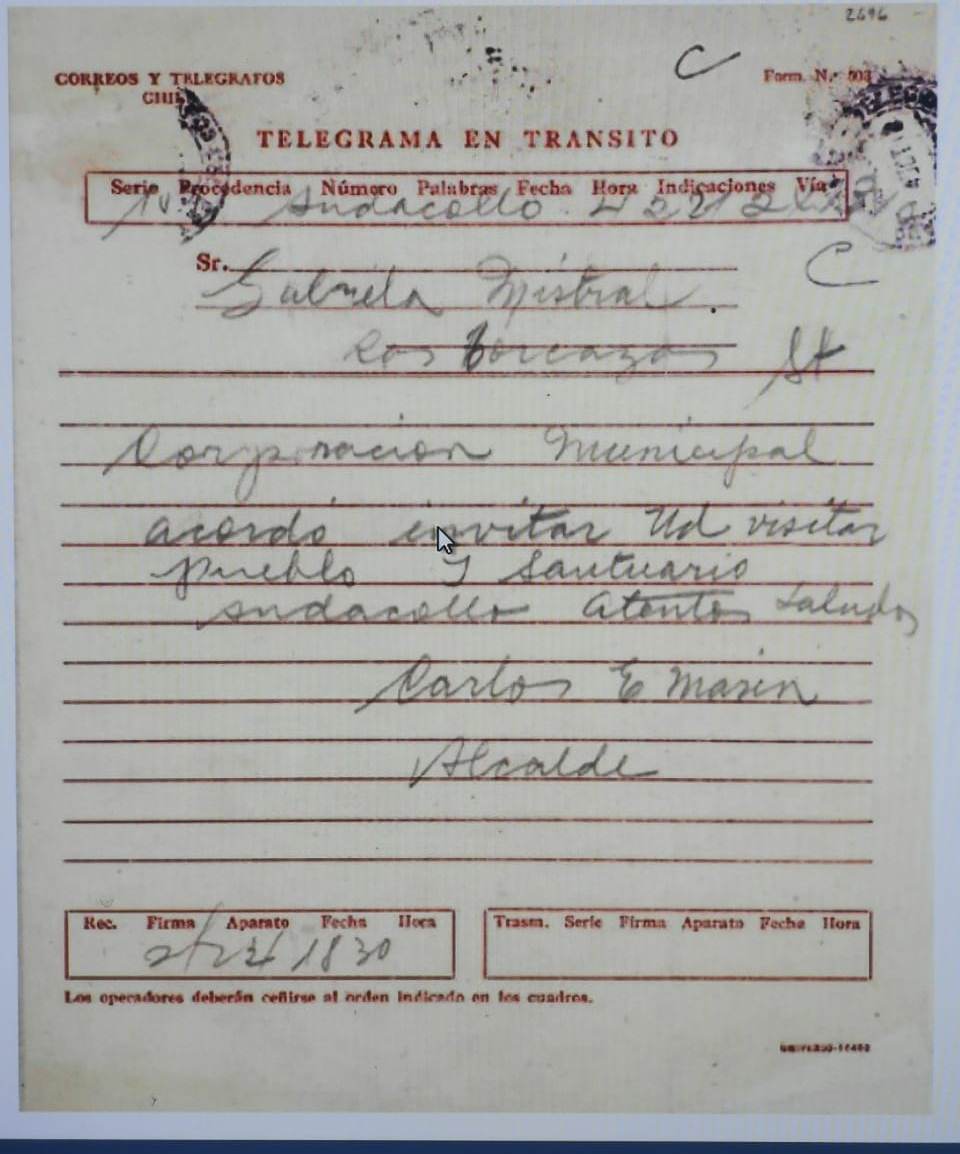 2696
C
CORREOS Y TELEGRAFOS
CHILE
Form. N.° 503
TELEGRAMA EN TRANSITO
Serie Procedencia Número Palabras Fecha Hora Indicaciones Vía
Andacollo
Sr. Gabriela Mistral
C
Las Torcazas
St
Corporacion Municipal
acordó invitar Ud visitar
pueblo y Santuario
Andacollo Atentos Saludos
Carlos E Marin
Alcalde
Rec. Firma Aparato Fecha Hora
1830
Trasm. Serie Firma Aparato Fecha Hora
Los operadores deberán ceñirse al orden indicado en los cuadros.